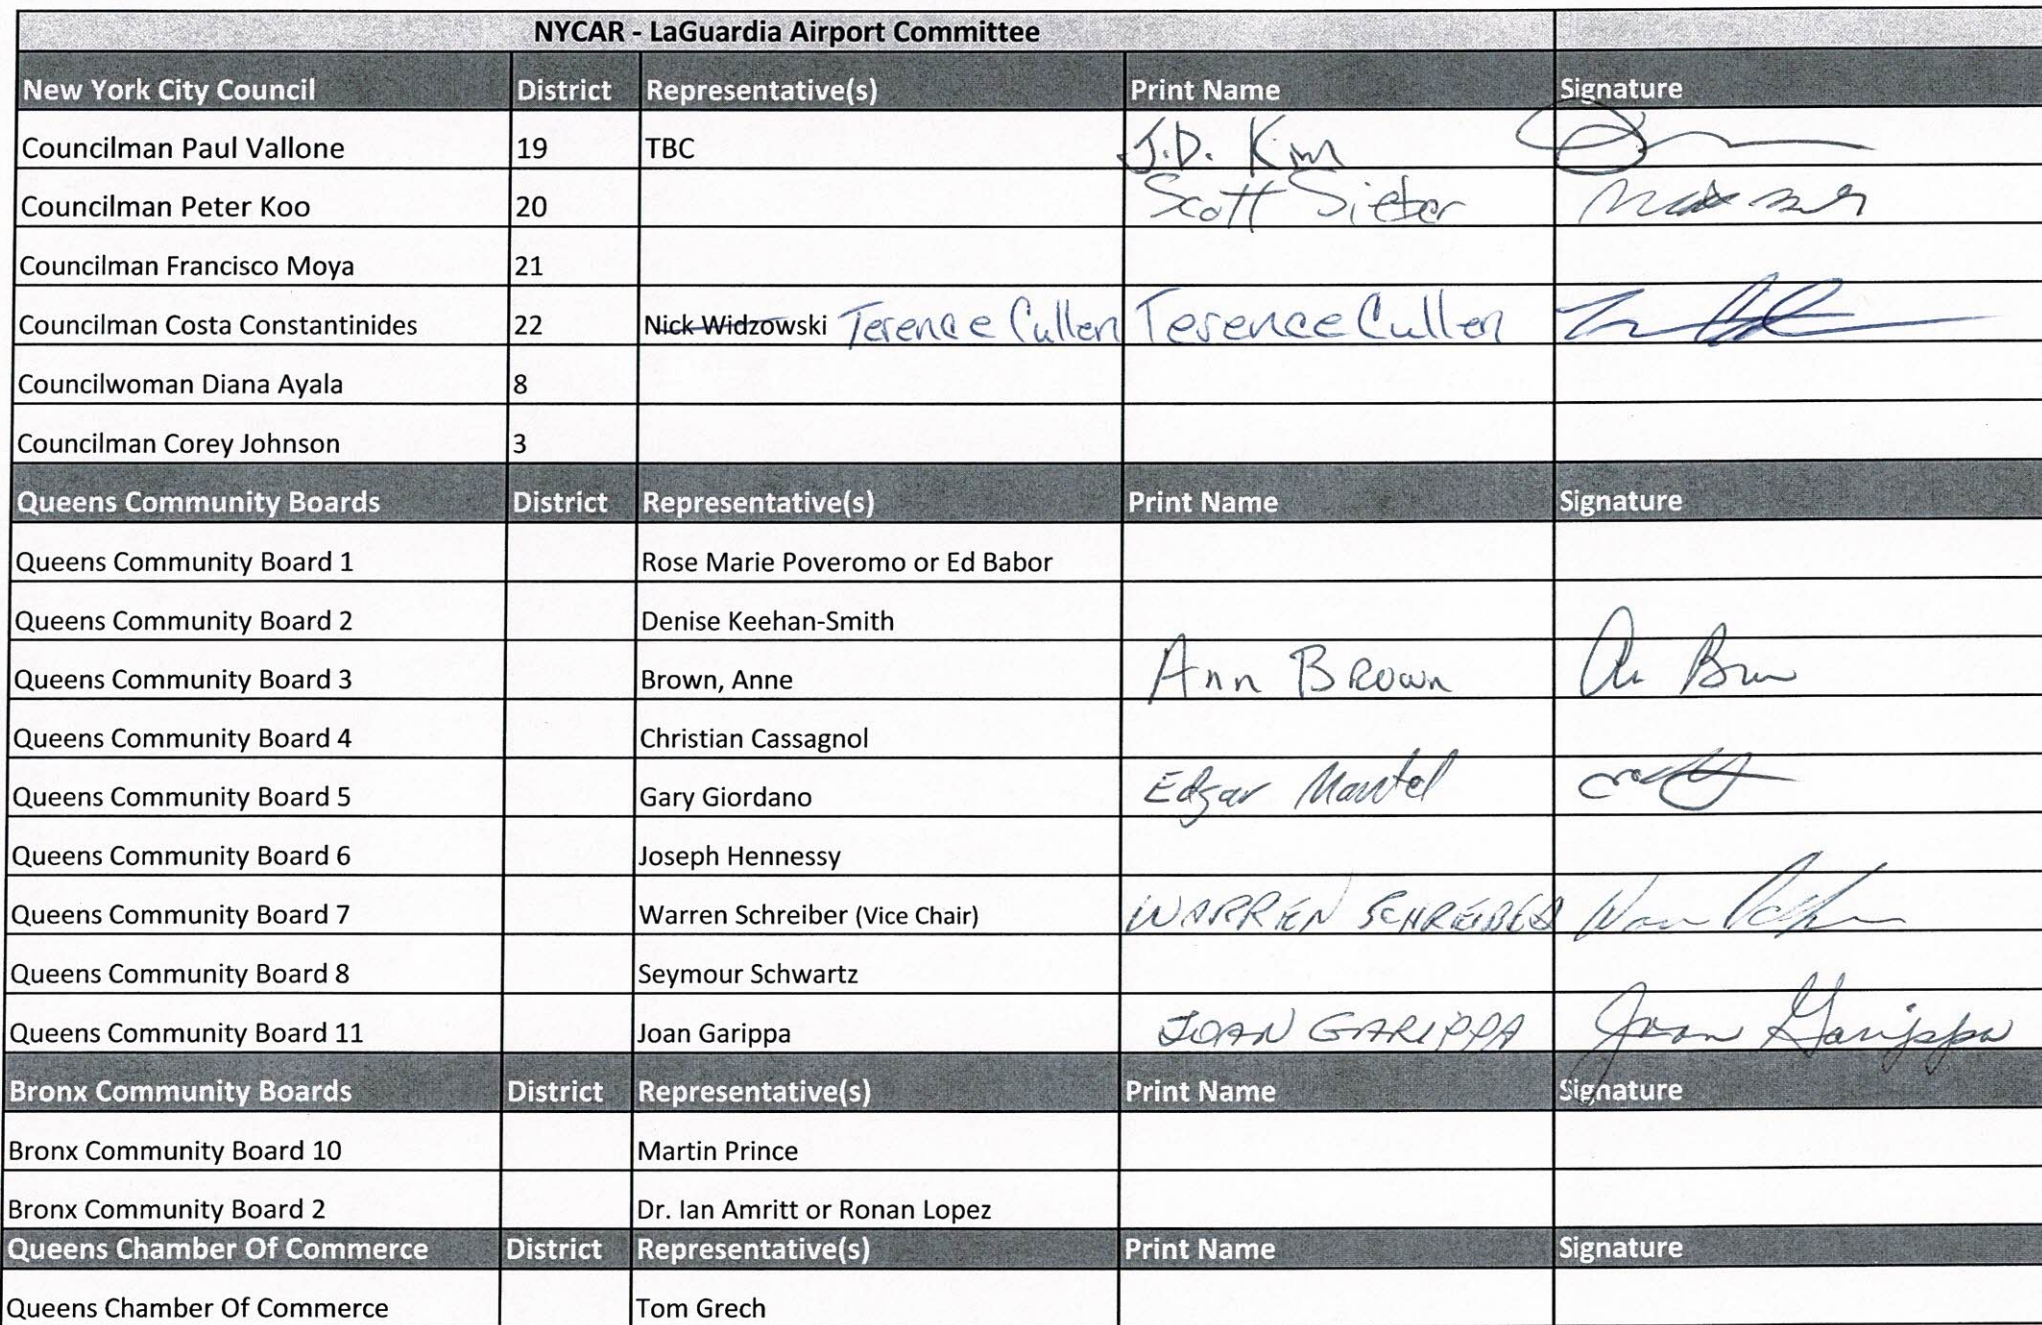 NYCAR - LaGuardia Airport Committee
New York City Council District Representative(s) Print Name Signature
Councilman Paul Vallone 19 TBC J.D. Kim
Councilman Peter Koo 20 Scott Sieber
Councilman Francisco Moya 21
Councilman Costa Constantinides 22 Nick Widzowski Terence Cullen Terence Cullen
Councilwoman Diana Ayala 8
Councilman Corey Johnson 3
Queens Community Boards District Representative(s) Print Name Signature
Queens Community Board 1 Rose Marie Poveromo or Ed Babor
Queens Community Board 2 Denise Keehan-Smith
Queens Community Board 3 Brown, Anne Ann Brown
Queens Community Board 4 Christian Cassagnol
Queens Community Board 5 Gary Giordano Edgar Mantel
Queens Community Board 6 Joseph Hennessy
Queens Community Board 7 Warren Schreiber (Vice Chair) WARREN SCHREIBER
Queens Community Board 8 Seymour Schwartz
Queens Community Board 11 Joan Garippa JOAN GARIPPA Joan Garippa
Bronx Community Boards District Representative(s) Print Name Signature
Bronx Community Board 10 Martin Prince
Bronx Community Board 2 Dr. Ian Amritt or Ronan Lopez
Queens Chamber Of Commerce District Representative(s) Print Name Signature
Queens Chamber Of Commerce Tom Grech